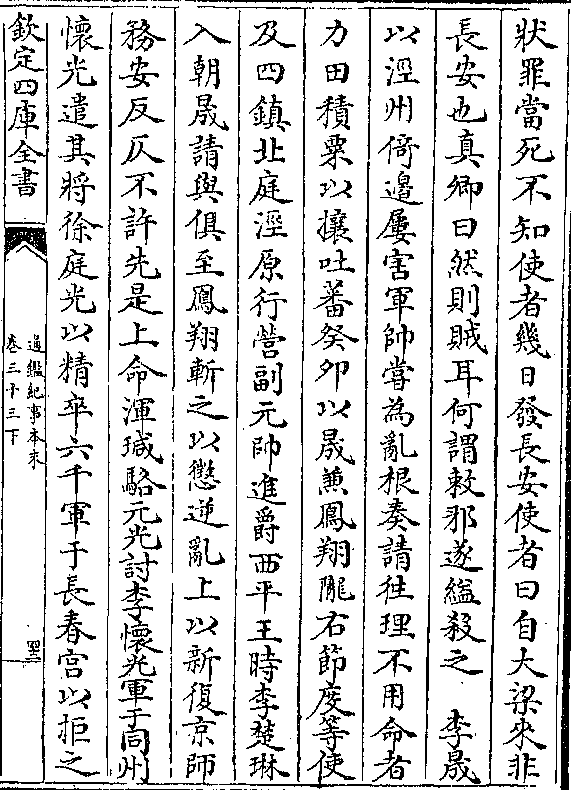 狀罪當死不知使者幾日發長安使者曰自大梁來非
長安也真卿曰然則賊耳何謂敕邪遂縊殺之　李晟
以涇州倚邊屢害軍帥常為亂根奏請往理不用命者
力田積粟以攘吐蕃癸卯以晟兼鳳翔隴右節度等使
及四鎮北庭涇原行營副元帥進爵西平王時李楚琳
入朝晟請與俱至鳳翔斬之以懲逆亂上以新復京師
務安反仄不許先是上命渾瑊駱元光討李懷光軍于同州
懷光遣其將徐庭光以精卒六千軍于長春宮以拒之
欽定四庫全書
通鑑紀事本末
卷三十三下